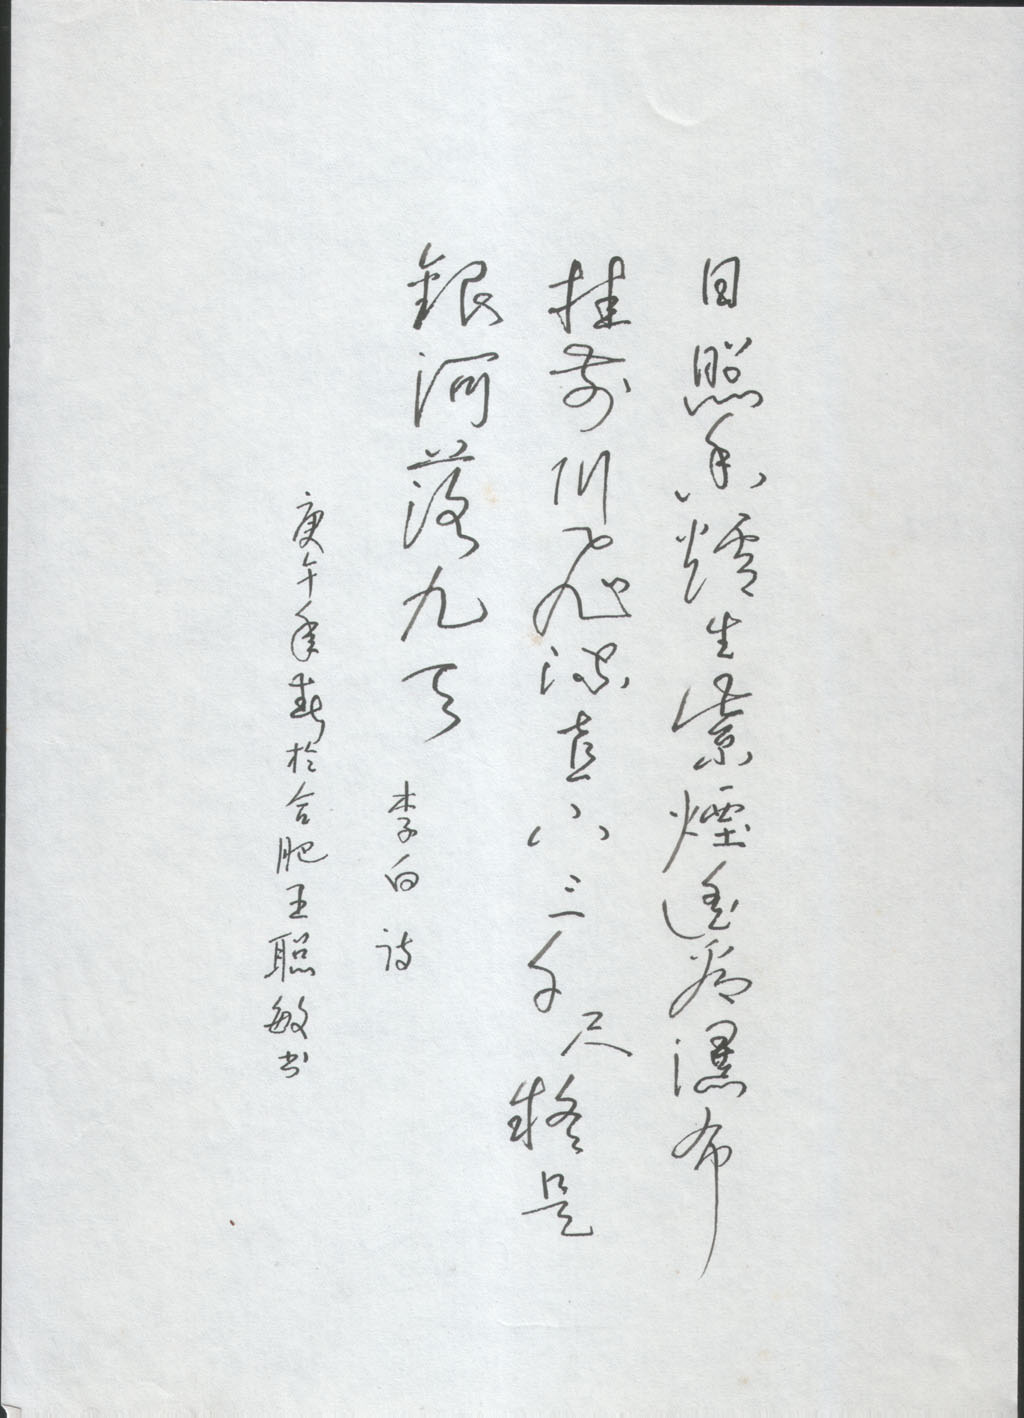 日照香爐生紫煙遙看瀑布
挂前川飛流直下三千尺疑是
銀河落九天 李白诗
庚午年春於合肥王聪敏书